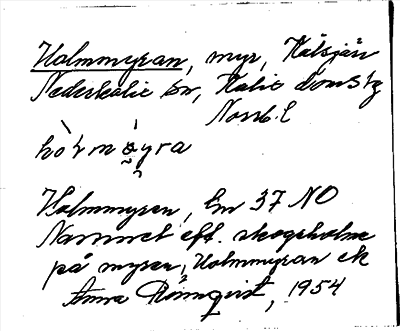 Holmmyran, myr, Kälsjärv
Nederkalix sn, Kalix domstg
Norrb. l
Holmmyren, En 37 NO
Namnet eft. skogsholme
på myren, Holmmyran ek
Anna Rönnqvist, 1954